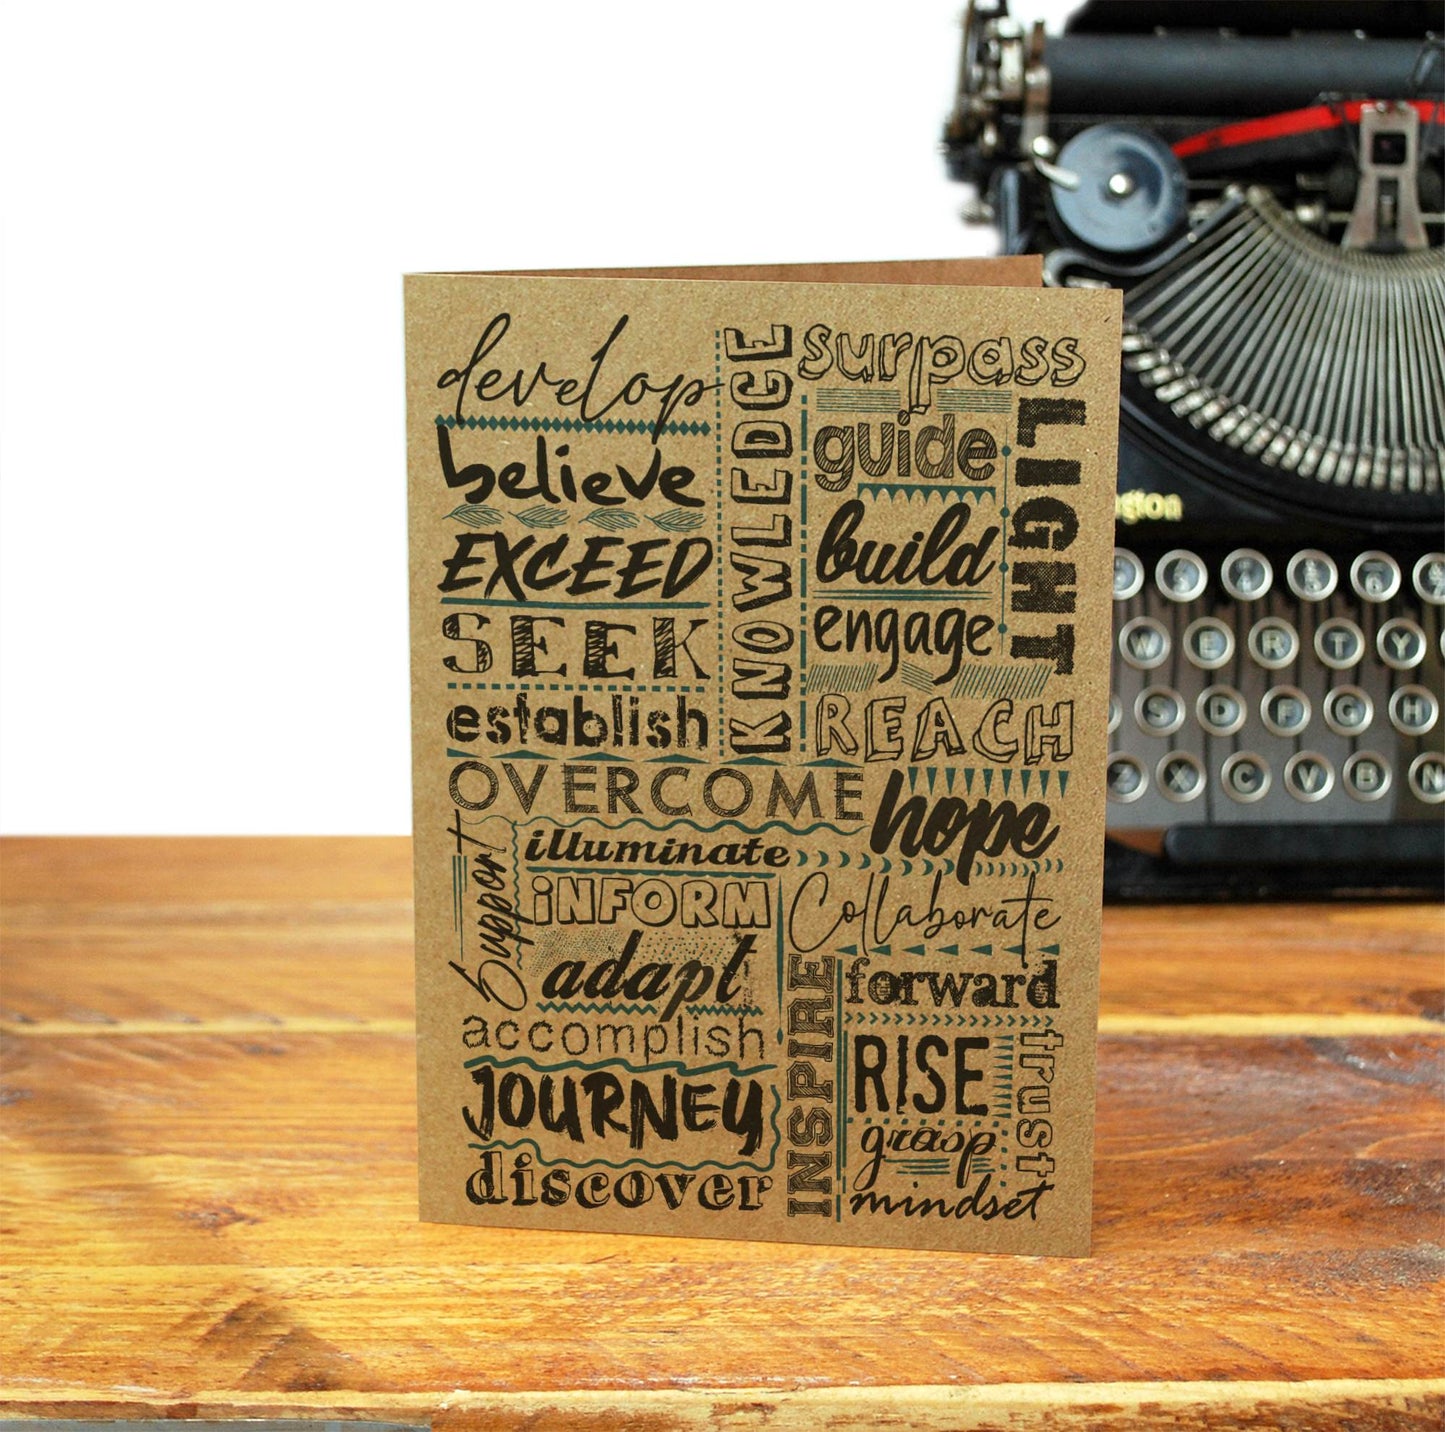 develop
believe
EXCEED
SEEK
establish
KNOWLEDGE
surpass
guide
build
engage
LIGHT
REACH
OVERCOME
hope
Support
illuminate
iNFORM
adapt
accomplish
JOURNEY
discover
Collaborate
INSPIRE
forward
RISE
trust
grasp
mindset
gton
W E R T Y
S D F G H
Z X C V B N